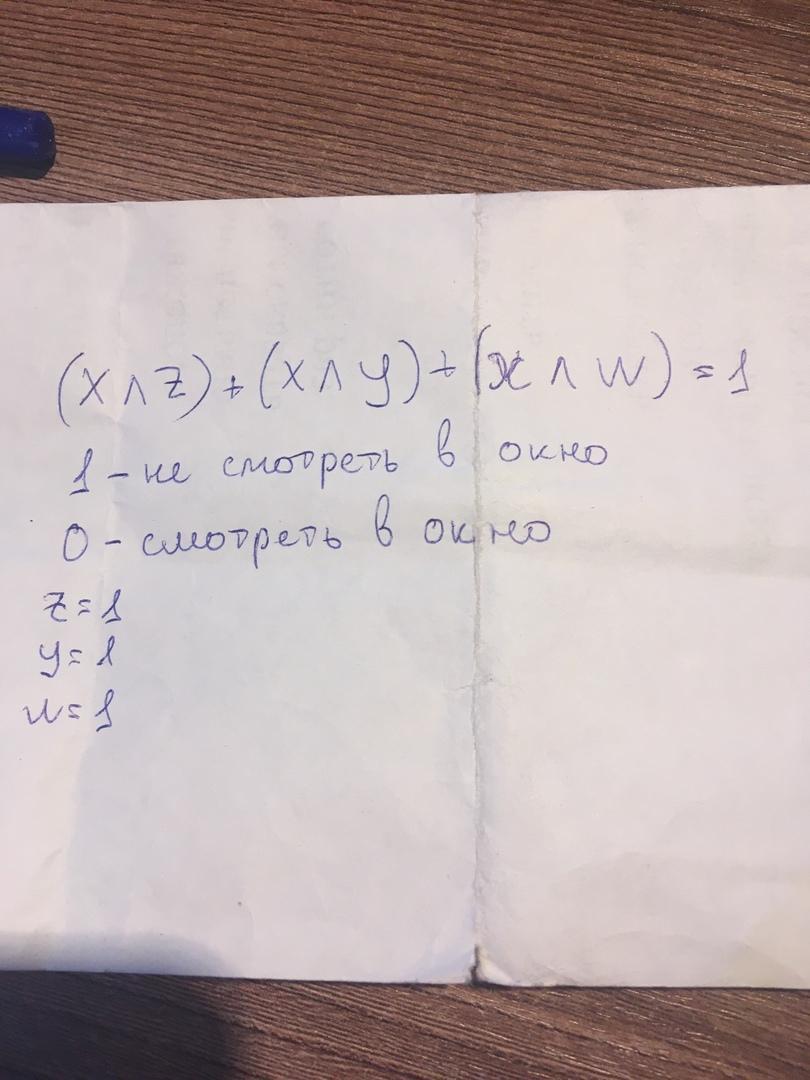 (X ∧ Z) + (X ∧ Y) + (X ∧ W) = 1
1 - не смотреть в окно
0 - смотреть в окно
Z = 1
Y = 1
W = 1